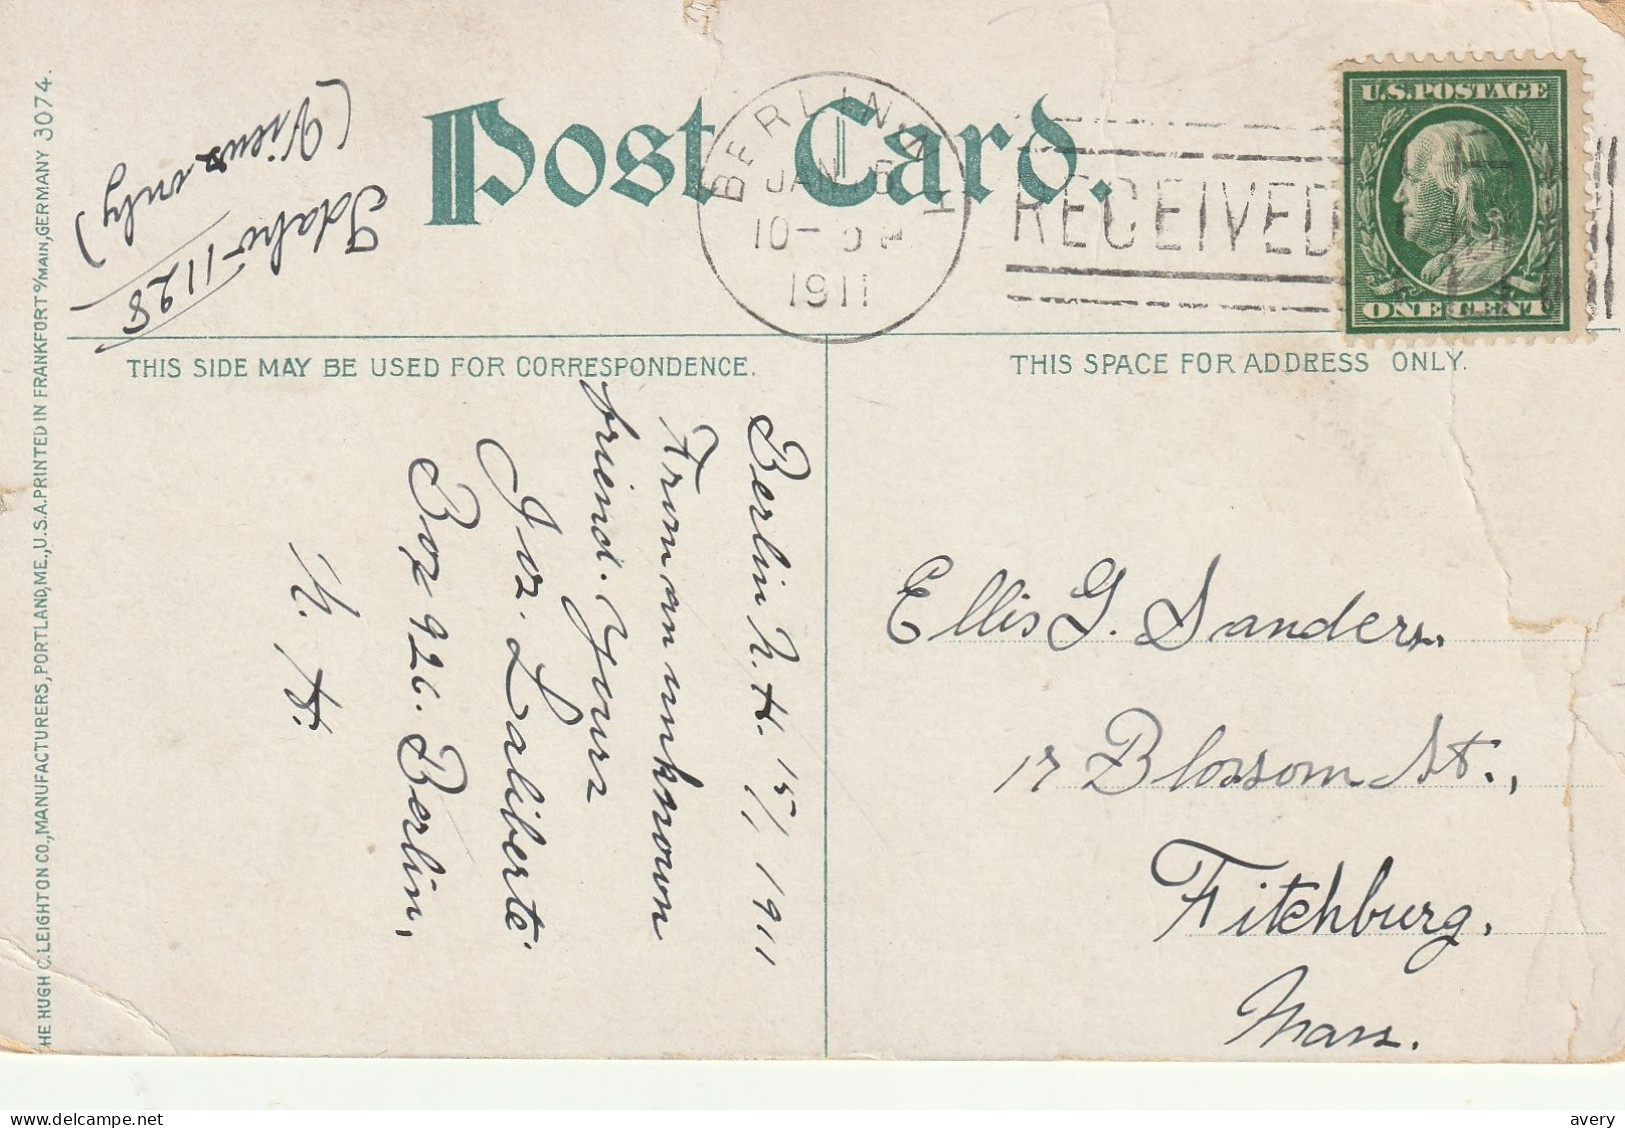 Post Card.
BERLIN N H
JAN 5
1911
RECEIVED
U.S.POSTAGE
ONE CENT
Idaho-1128
(Views only)
THIS SIDE MAY BE USED FOR CORRESPONDENCE.
THIS SPACE FOR ADDRESS ONLY.
Berlin N. H. 15/1 1911
From an unknown
friend. Yours
Jos. Laliberté
Box 926. Berlin,
N. H.
Ellis G. Sanders.
17 Blossom St.,
Fitchburg,
Mass.
HE HUGH C.LEIGHTON CO.,MANUFACTURERS,PORTLAND,ME.,U.S.A.PRINTED IN FRANKFORT o/MAIN,GERMANY 3074.
delcampe.net
avery